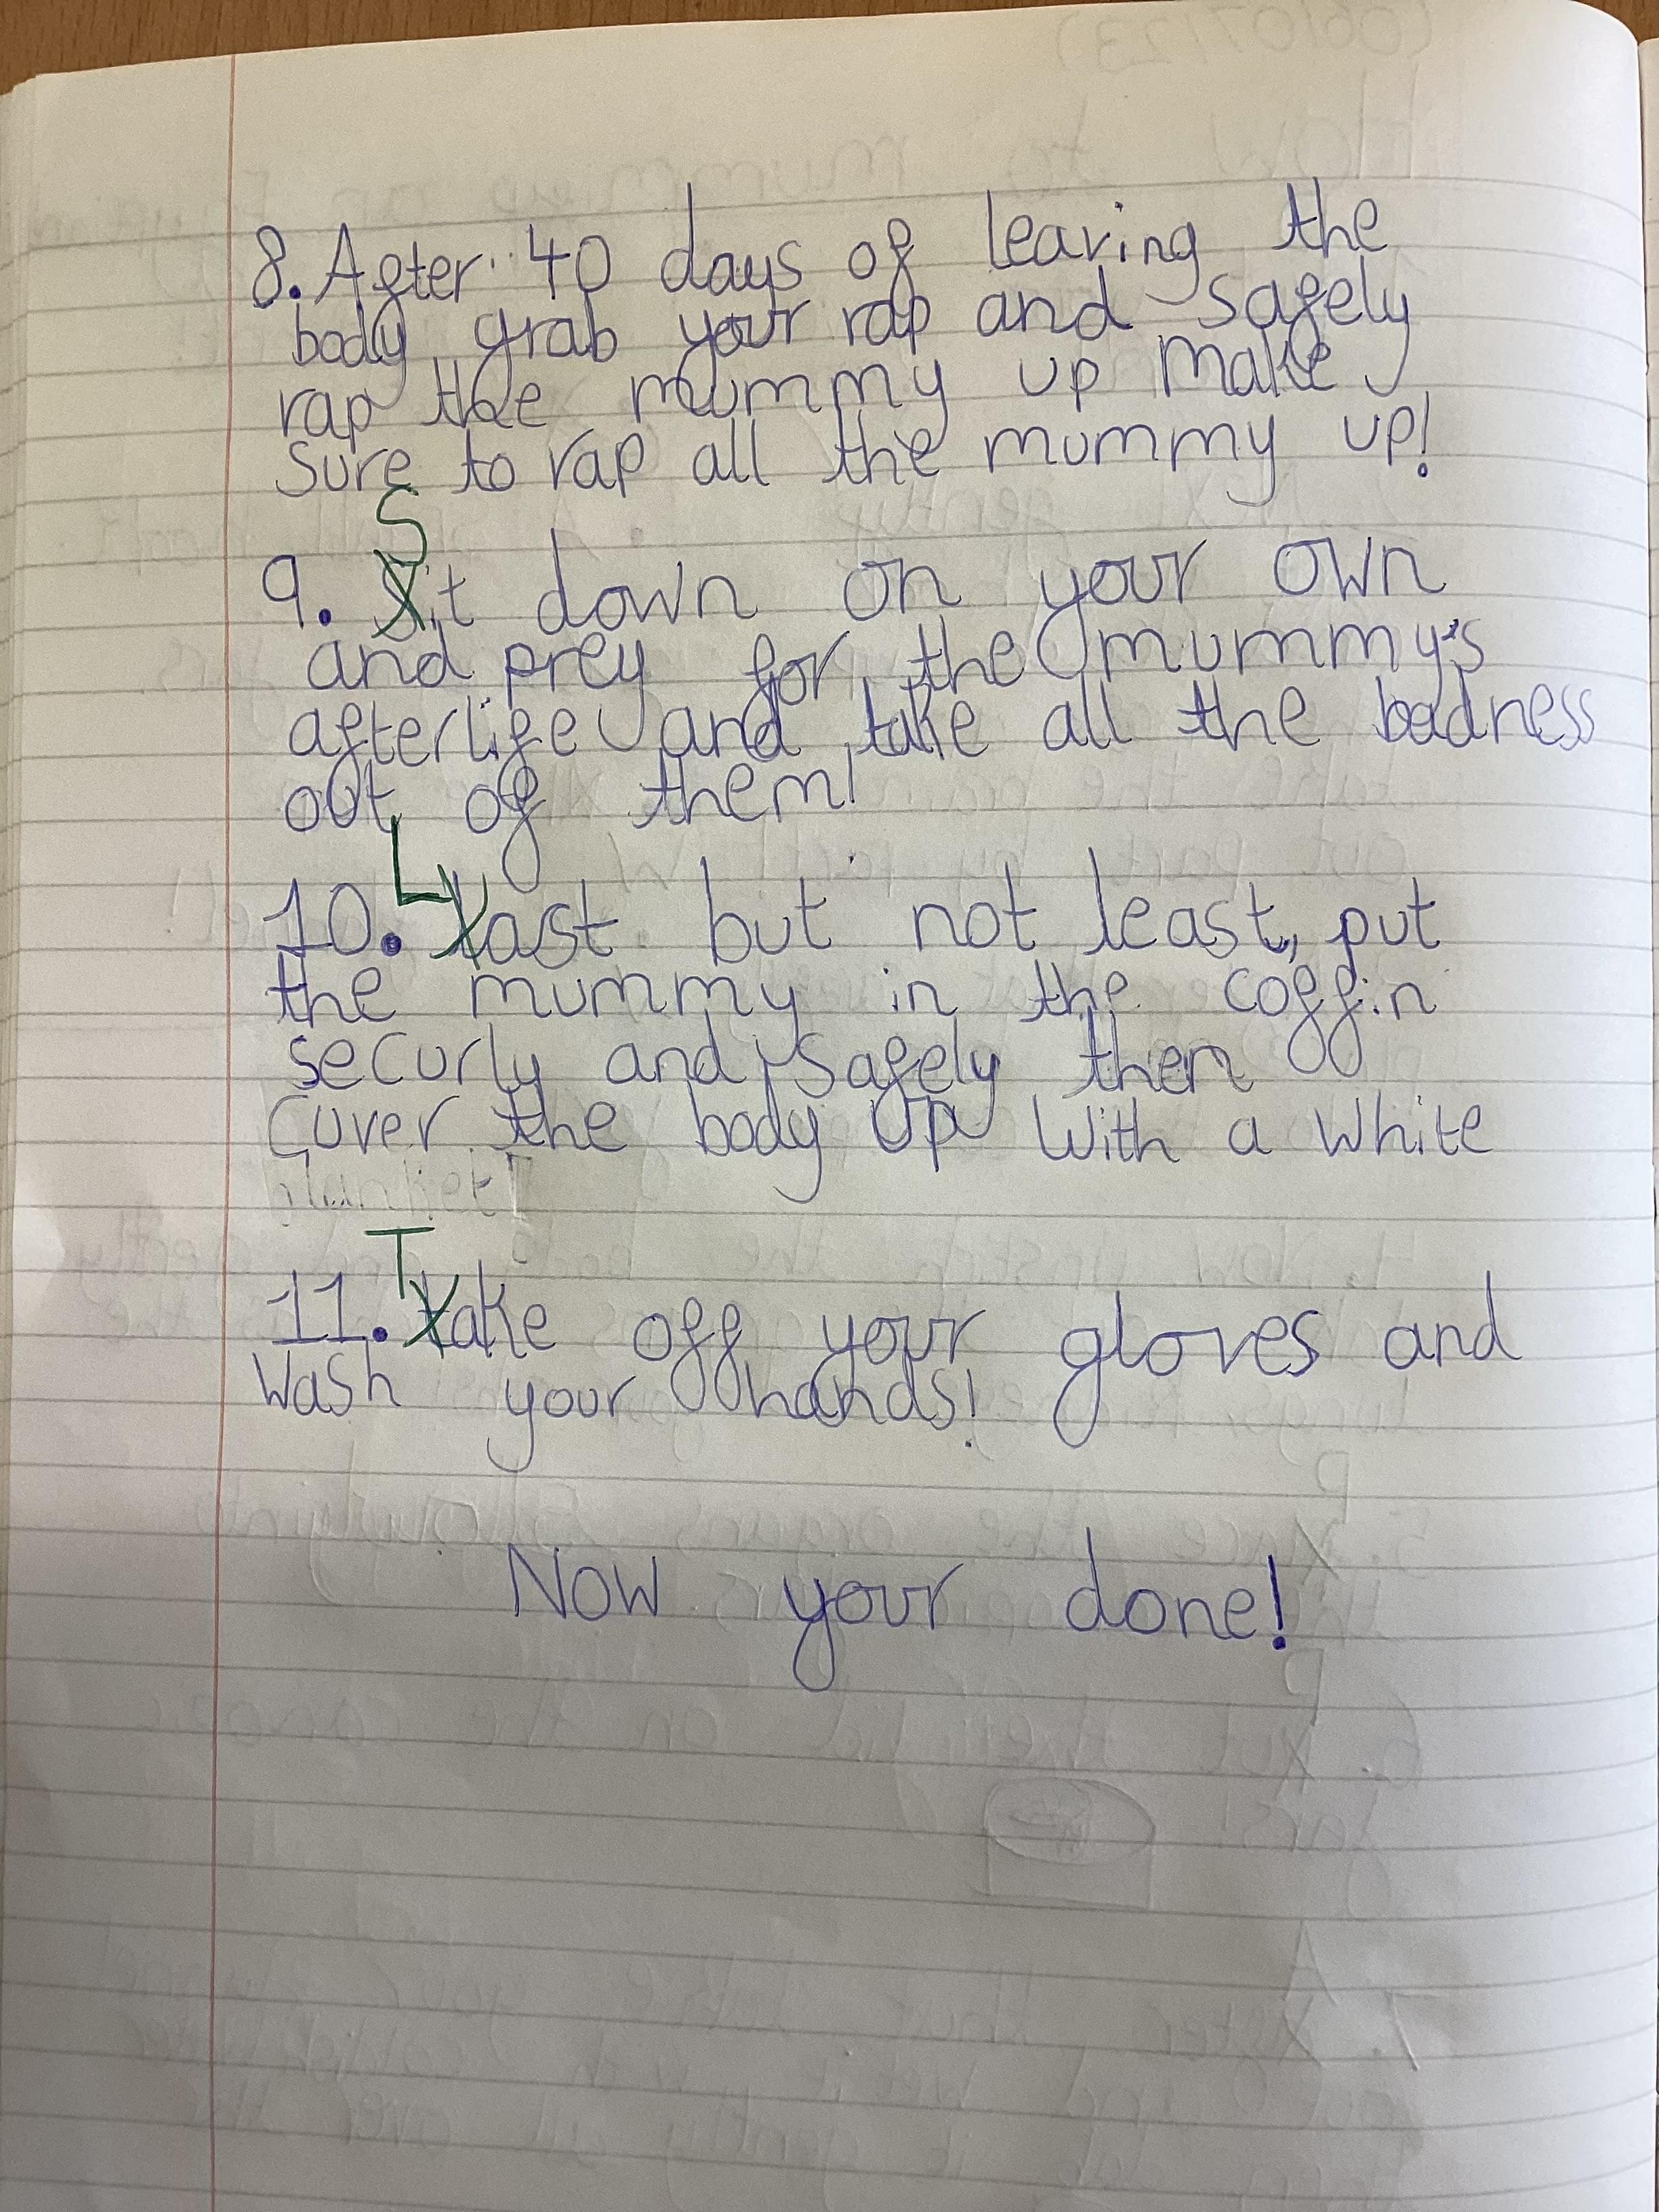 8. After 40 days of leaving the
body grab your rap and safely
rap the mummy up make
sure to rap all the mummy up!
9. Sit down on your own
and prey for the mummy's
afterlife and take all the badness
out of them!
10. Last but not least, put
the mummy in the coffin
securly and safely then
cuver the body up with a white
blanket!
11. Take off your gloves and
wash your hands!
Now your done!